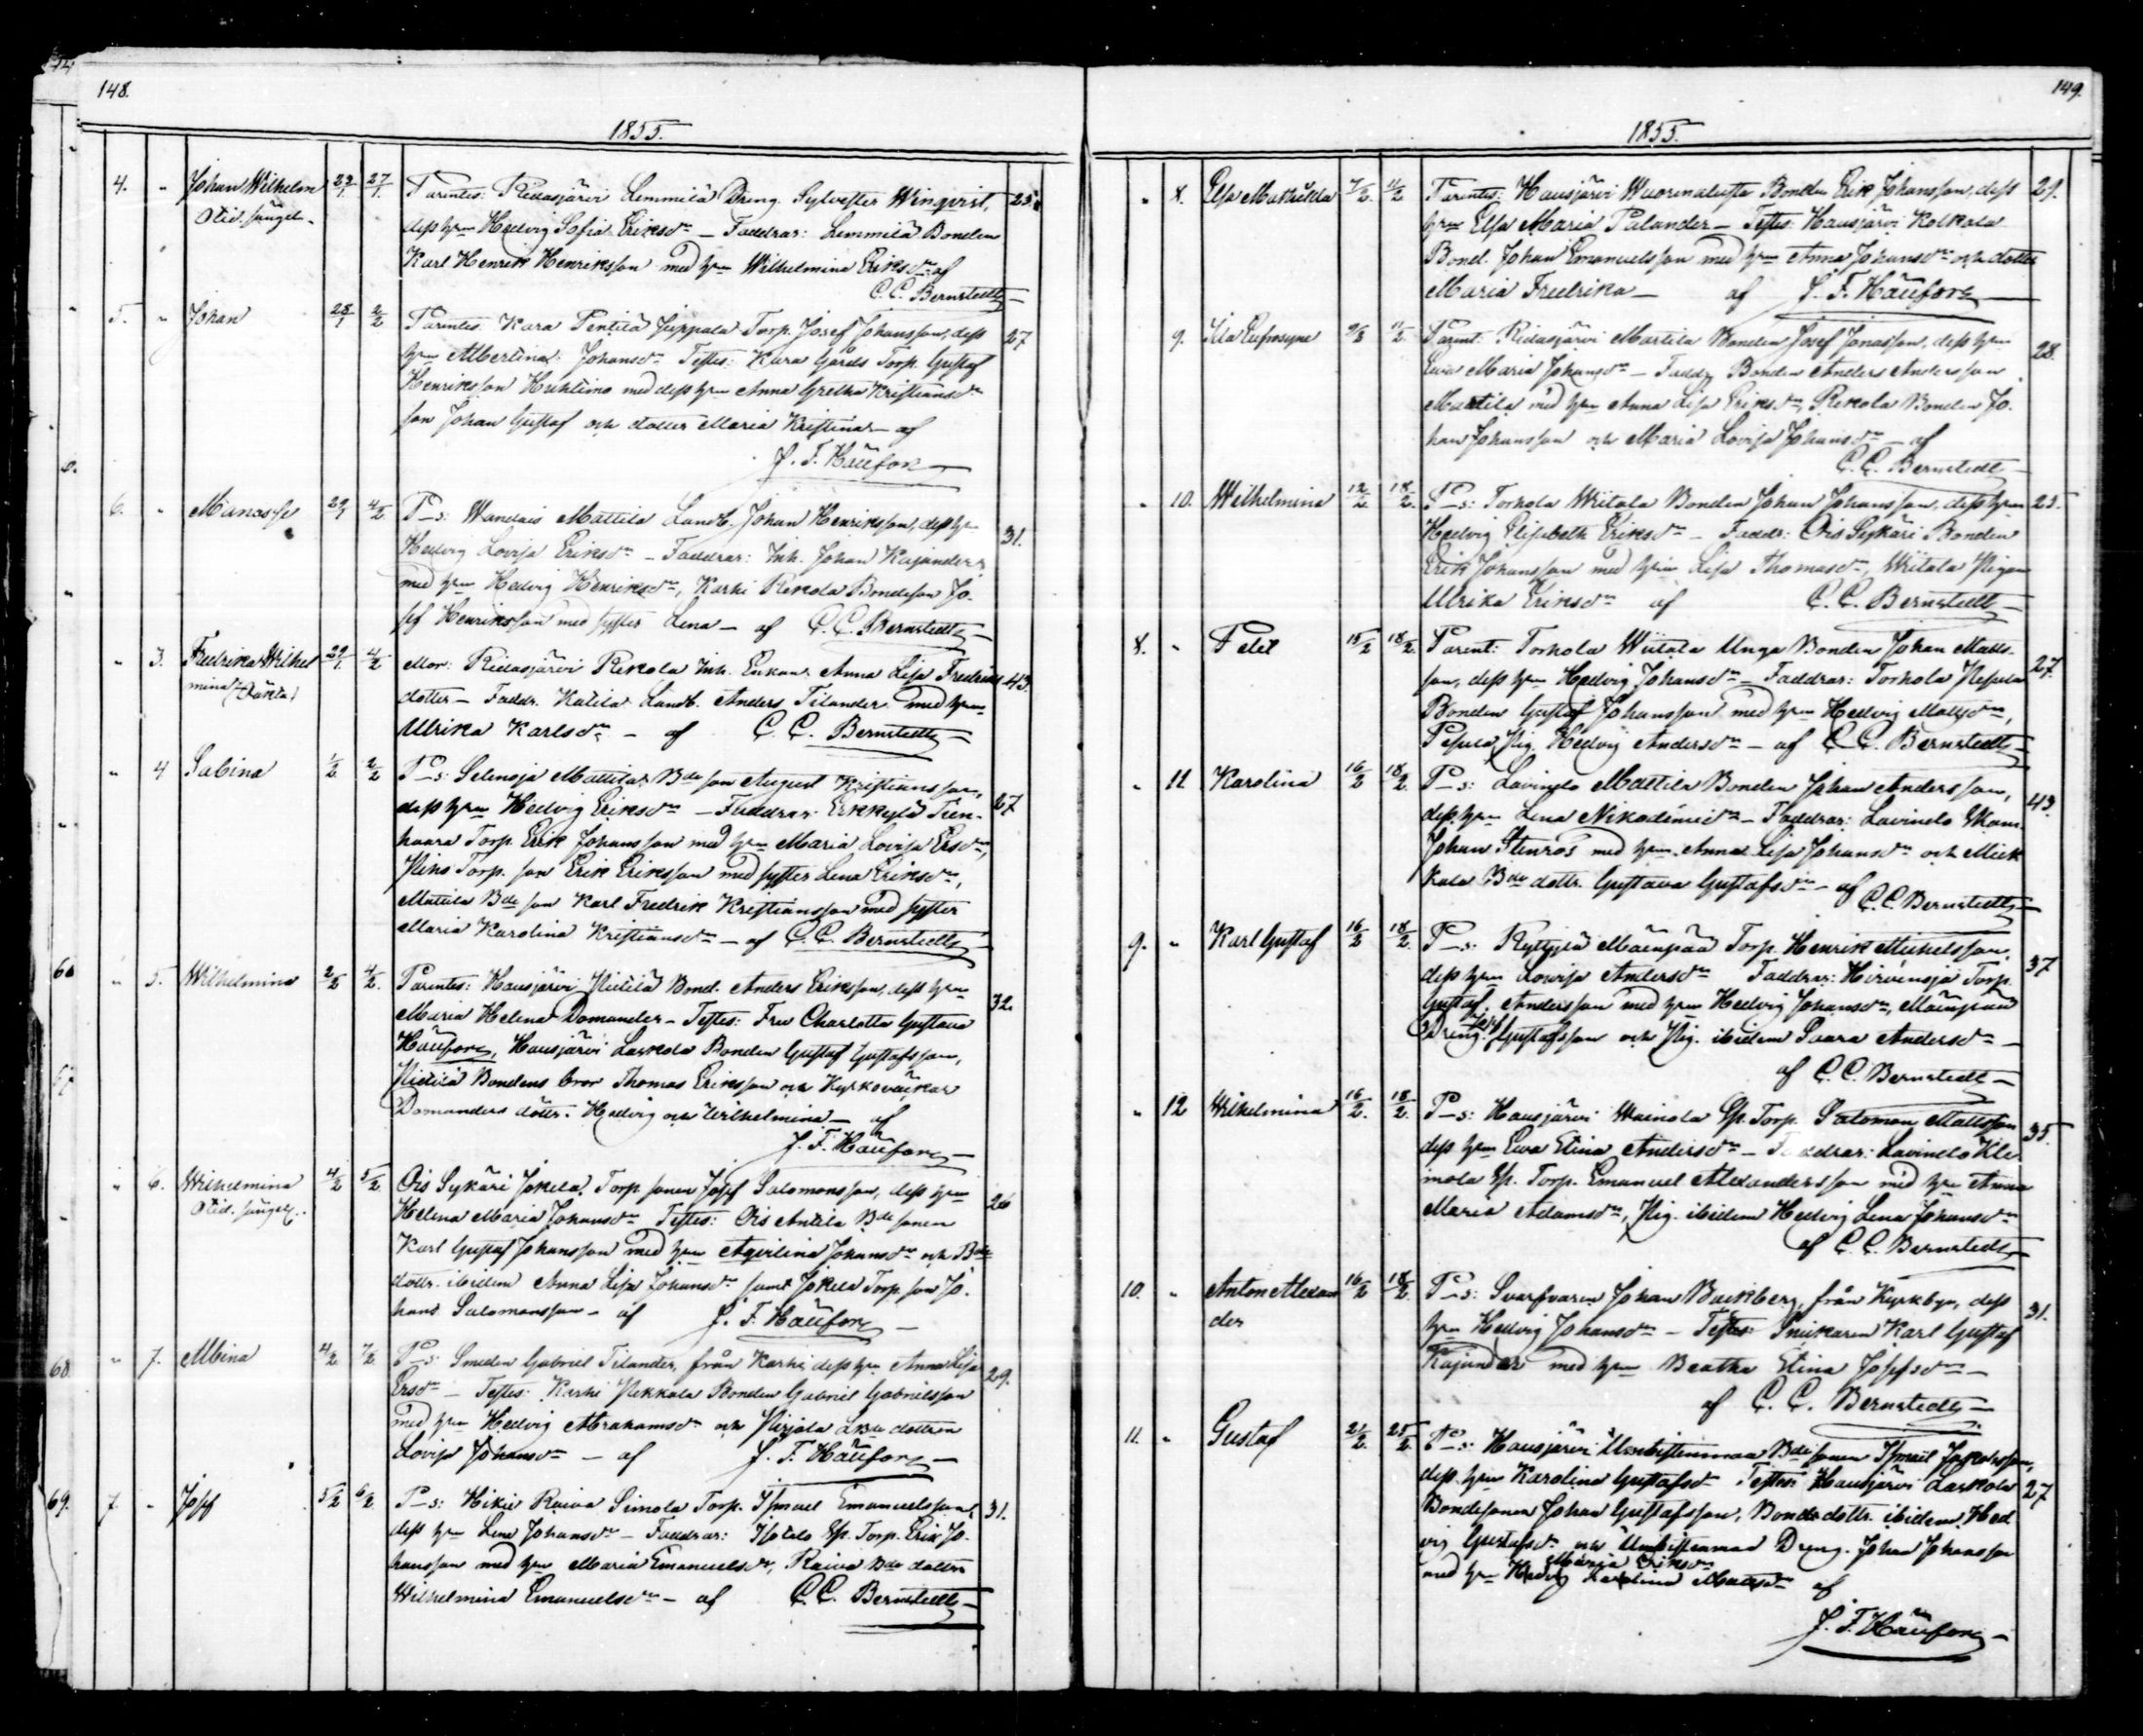 148.
1855.
4. " Johan Wilhelm 23/1 27/1 Parentes: Ridasjärvi Lemmilä Dreng. Sylvester Winqvist, 25.
Otid. fängels. dess hru Hedvig Sofia Eriksdr — Faddrar: Lemmilä Bonden
Karl Henrik Henriksson med hru Wilhelmina Eriksdr af
C. C. Bernstedt
5. " Johan 28/1 2/2 Parentes: Kara Pentilä Juppala Torp. Josef Johansson, dess 27
hru Albertina Johansdr Testes: Kara Gårds Torp. Gustaf
Henriksson Huhtimo med dess hru Anna Gretha Kristiansdr
son Johan Gustaf och dotter Maria Kristina — af
J. F. Häufor
6. " Manasse 29/1 4/2 P—s: Wandais Mattila Landb. Johan Henriksson, dess hru 31.
Hedvig Lovisa Eriksdr — Faddrar: Inh. Johan Kajander
med hru Hedvig Henriksdr, Karhi Rekola Bondeson Jo-
sef Henriksson med syster Lena — af C. C. Bernstedt
" 3. Fredrika Wilhel 29/1 4/2 Mor: Ridasjärvi Rekola Inh. Enkan Anna Lisa Fredriks 43.
mina (Oäkta) dotter — Faddr. Katila Landb. Anders Tilander med hru
Ulrika Karlsdr — af C. C. Bernstedt
" 4 Sabina 1/2 2/2 P—s: Selensjä Mattilas Bde son August Kristiansson, 27
dess hru Hedvig Eriksdr — Faddrar: Erkkylä Tien-
haara Torp. Erik Johansson med hru Maria Lovisa Ersdr,
Torp. son Erik Eriksson med syster Lena Eriksdr,
Mattila Bde son Karl Fredrik Kristiansson med syster
Maria Karolina Kristiansdr — af C. C. Bernstedt
" 5. Wilhelmina 2/2 4/2 Parentes: Hausjärvi Pietilä Bond. Anders Eriksson, dess hru 32.
Maria Helena Domander — Testes: Fru Charlotta Gustava
Häufors, Hausjärvi Laskola Bonden Gustaf Gustafsson,
Pietilä Bondens bror Thomas Eriksson och Kyrkoväktar
Domanders döttr. Hedvig och Wilhelmina — af
J. F. Häufors
" 6. Wilhelmina 4/2 5/2 Ois Sykäri Jokela Torp. sonen Josef Salomonsson, dess hru 26
Otid. fängels. Helena Maria Johansdr Testes: Ois Antila Bde sonen
Karl Gustaf Johansson med hru Agvilina Johansdr och Bde
dottr. ibidem Anna Lisa Johansdr samt Jokela Torp. son Jo-
hans Salomonsson — af J. F. Häufors
" 7. Albina 4/2 7/2 P—s: Smeden Gabriel Tilander, från Karhi, dess hru Anna Lisa 29.
Ersdr — Testes: Karhi Pekkala Bonden Gabriel Gabrielsson
med hru Hedvig Abrahamsdr och Pirjola Lbde dottren
Lovisa Johansdr — af J. F. Häufors
7. " Josef 5/2 6/2 P—s: Hikiä Raiva Simola Torp. Ismael Emanuelsson, 31.
dess hru Lena Johansdr — Faddrar: Isotalo Sp. Torp. Erik Jo-
hansson med hru Maria Emanuelsdr, Raiva Bde dottr.
Wilhelmina Emanuelsdr — af C. C. Bernstedt
60
57
68
69.
149.
1855.
" 8. Elsa Mathilda 7/2 11/2 Parentes: Hausjärvi Wuorenalusta Bonden Erik Johansson, dess 29.
hru Elsa Maria Palander — Testes: Hausjärvi Kolkala
Bond. Johan Emanuelsson med hru Anna Johansdr och dotter
Maria Fredrika — af J. F. Häufors
9. Ida Eufrosyne 9/2 11/2 Parent: Ridasjärvi Martila Bonden Josef Jonasson, dess hru 28.
Ewa Maria Johansdr — Faddr. Bonden Anders Andersson
Martila med hru Anna Lisa Eriksdr, Rekola Bonden Jo-
han Johansson och Maria Lovisa Johansdr — af
C. C. Bernstedt
" 10. Wilhelmina 12/2 18/2 P—s: Torhola Wiitala Bonden Johan Johansson, dess hru 25.
Hedvig Elisabeth Eriksdr — Faddr: Ois Sykäri Bonden
Erik Johansson med hru Lisa Thomasdr, Wiitala Pigan
Ulrika Eriksdr af C. C. Bernstedt
8. " Petter 15/2 18/2 Parent: Torhola Wiitala Unga Bonden Johan Matts- 27.
son, dess hru Hedvig Johansdr — Faddrar: Torhola Pesula
Bonden Gustaf Johansson med hru Hedvig Mattsdr,
Pesula Pig. Hedvig Andersdr — af C. C. Bernstedt
" 11 Karolina 16/2 18/2 P—s: Lavinto Mattila Bonden Johan Andersson, 43.
dess hru Lena Nikodemidr — Faddrar: Lavinto
Johan Stenros med hru Anna Lisa Johansdr och Miek
kala Bde dottr. Gustava Gustafsdr — af C. C. Bernstedt
9. " Karl Gustaf 16/2 18/2 P—s: Ryttylä Mäenpää Torp. Henrik Michelsson, 37
dess hru Lovisa Andersdr Faddrar: Hirvensjä Torp.
Gustaf Andersson med hru Hedvig Johansdr, Mäenpää
Dreng. Gustafsson och Pig. ibidem Saara Andersdr —
af C. C. Bernstedt
" 12 Wilhelmina 16/2 18/2 P—s: Hausjärvi Wainola Sp. Torp. Salomon Mattsson 35.
dess hru Ewa Stina Andersdr — Faddrar: Lavinto Kle-
mola Sp. Torp. Emanuel Alexandersson med hru Anna
Maria Adamsdr, Pig. ibidem Hedvig Lena Johansdr
af C. C. Bernstedt
10. " Anton Alexan 16/2 18/2 P—s: Svarfvaren Johan Backberg, från Kyrkbyn, dess 31.
der hru Hedvig Johansdr — Testes: Snickaren Karl Gustaf
Kajander med hru Beatha Stina Josefsdr —
af C. C. Bernstedt
11. " Gustaf 21/2 25/2 P—s: Hausjärvi Umbistenmaa Bde sonen Ismael Jakobsson, 27
dess hru Karolina Gustafsdr Testes: Hausjärvi Laskola
Bondesonen Johan Gustafsson, Bonde dottr. ibidem Hed
vig Gustafsdr och Umbistenmaa Dreng. Johan Johansson
med hru Maria Eriksdr af
J. F. Häufors